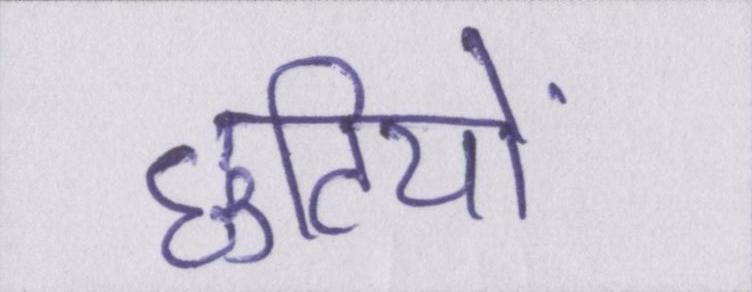 छुतियों